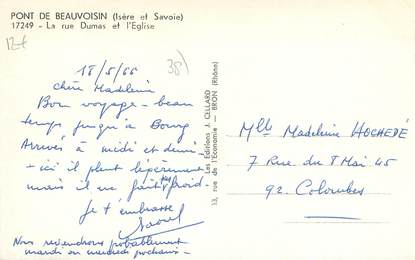 PONT DE BEAUVOISIN (Isère et Savoie)
17249 - La rue Dumas et l'Eglise
12€
38)
18/5/66
Chère Madeleine
Bon voyage - beau
temps jusqu'à Bourg
Arrivés à midi et demi
- ici il pleut légèrement
mais il ne fait pas froid -
Je t'embrasse
Raoul
Nous reviendrons probablement
mardi ou mercredi prochain -
Les Editions J. CELLARD
13, rue de l'Economie - BRON (Rhône)
Mlle Madeleine HOCHEDÉ
7 Rue du 8 Mai 45
92. Colombes